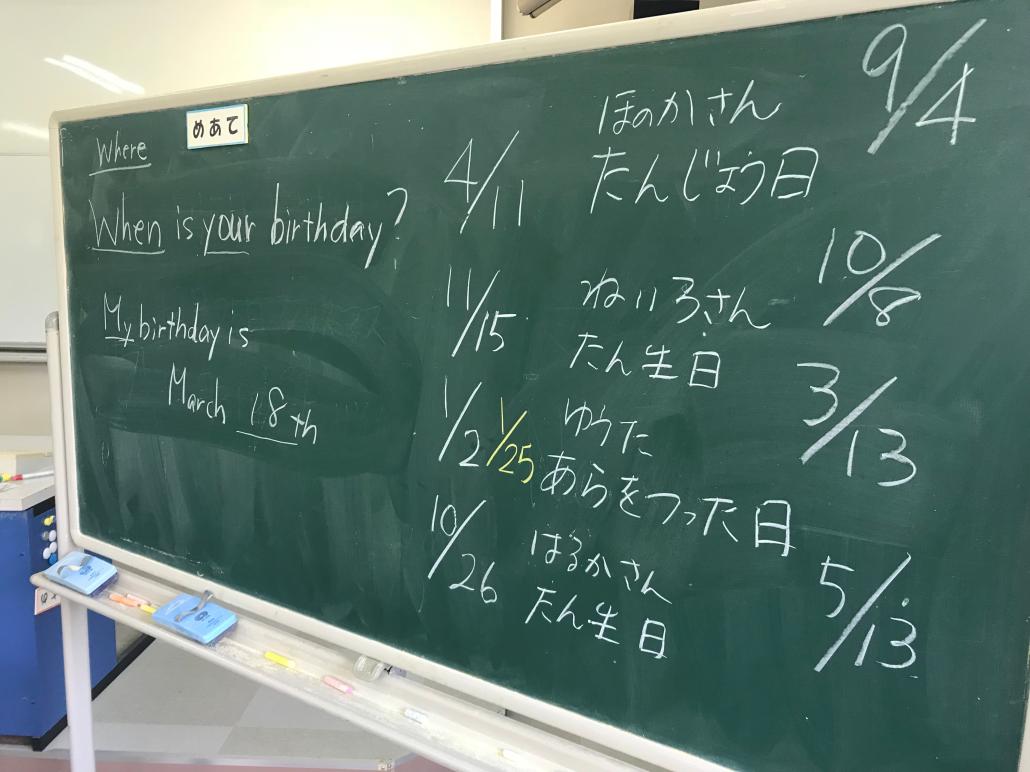 めあて
Where
When is your birthday?
My birthday is
March 18th
4/11
ほのかさん
たんじょう日
9/4
11/15
ねいろさん
たん生日
10/8
1/2
1/25
ゆうた
あらをつった日
3/13
10/26
はるかさん
たん生日
5/13